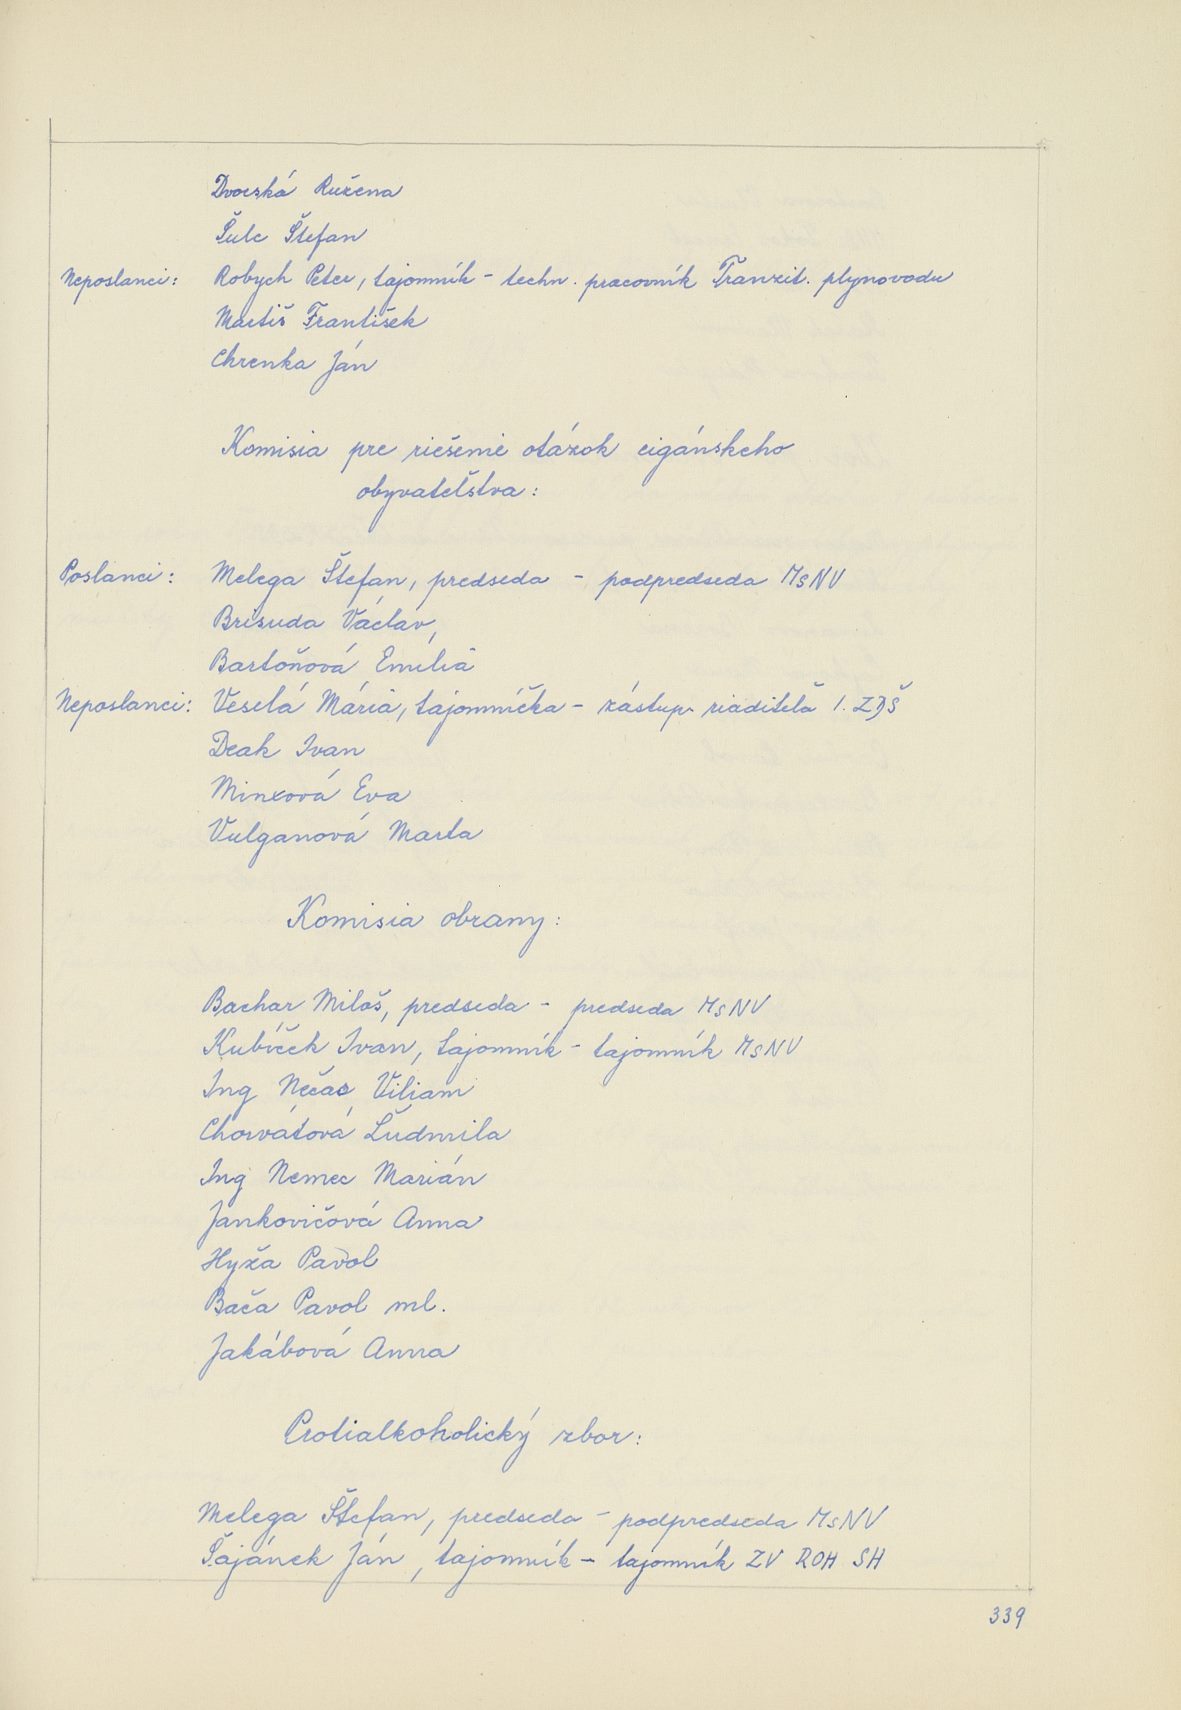 Dvorská Ružena
Šulc Štefan
Neposlanci: Robych Peter, tajomník - techn. pracovník Tranzit. plynovodu
Martiš František
Chrenka Ján
Komisia pre riešenie otázok cigánskeho
obyvateľstva:
Poslanci: Melega Štefan, predseda - podpredseda MsNV
Brisuda Václav,
Bartoňová Emília
Neposlanci: Veselá Mária, tajomníčka - zástup. riaditeľa 1. ZDŠ
Deak Ivan
Minxová Eva
Vulganová Marta
Komisia obrany:
Bachar Miloš, predseda - predseda MsNV
Kubíček Ivan, tajomník - tajomník MsNV
Ing Nečas Viliam
Chorvátová Ľudmila
Ing Nemec Marián
Jankovičová Anna
Hyža Pavol
Bača Pavol ml.
Jakábová Anna
Protialkoholický zbor:
Melega Štefan, predseda - podpredseda MsNV
Šajánek Ján, tajomník - tajomník ZV ROH SH
339